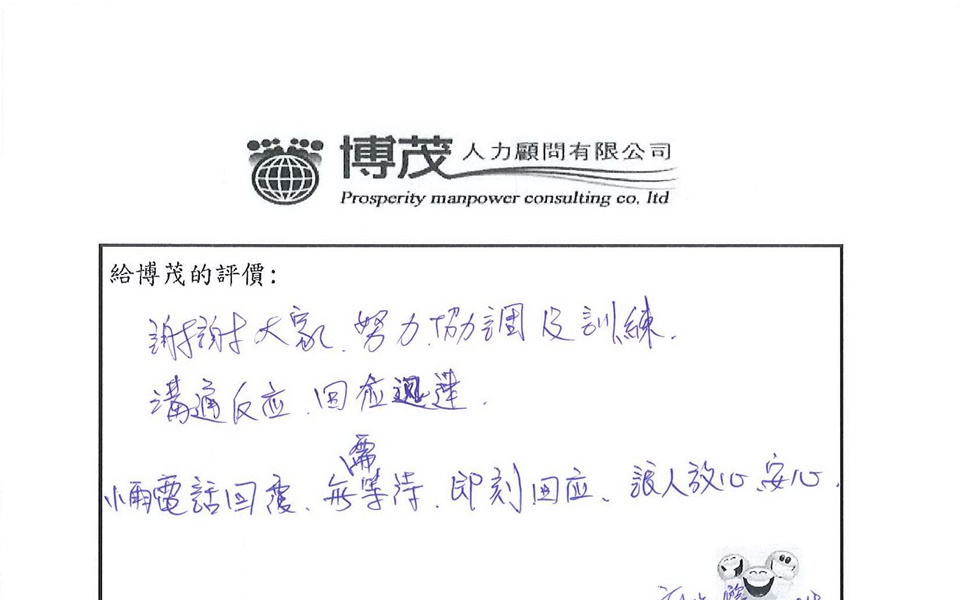 博茂人力顧問有限公司
Prosperity manpower consulting co. ltd
給博茂的評價:
謝謝大家、努力、協調及訓練.
溝通反应、回应迅速.
電話回覆、無需等待、即刻回应、讓人放心、安心.